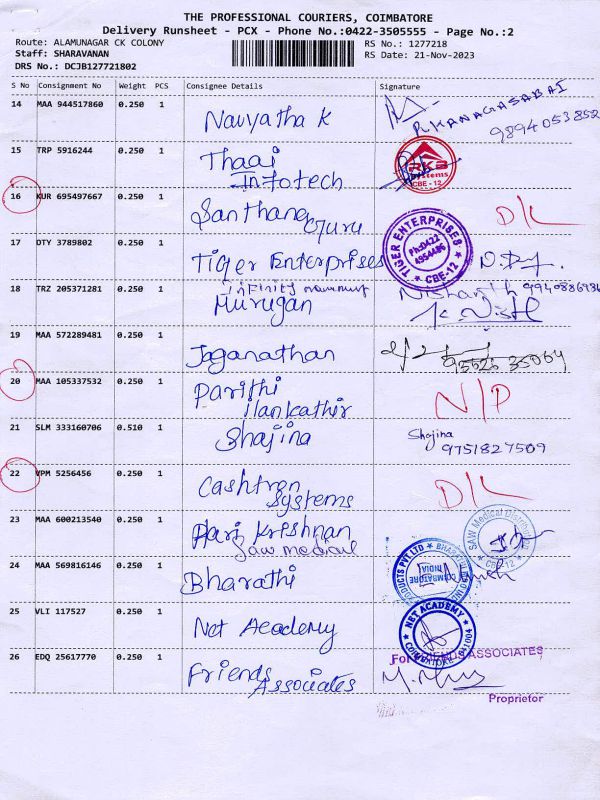 THE PROFESSIONAL COURIERS, COIMBATORE
Delivery Runsheet - PCX - Phone No.:0422-3505555 - Page No.:2
Route: ALAMUNAGAR CK COLONY
RS No.: 1277218
Staff: SHARAVANAN
RS Date: 21-Nov-2023
DRS No.: DCJB127721802
S No Consignment No Weight PCS Consignee Details Signature
14 MAA 944517860 0.250 1 Navyatha K
R KANAGASABAI
9894053852
15 TRP 5916244 0.250 1 Thaai
Infotech
RKB
Systems
CBE - 12
16 KUR 695497667 0.250 1 Santhana
Guru
D/L
17 OTY 3789802 0.250 1 Tiger Enterprises
TIGER ENTERPRISES
Ph:0422
4954486
CBE-12
18 TRZ 205371281 0.250 1 infinity
Murugan
Nishanth 9940886936
19 MAA 572289481 0.250 1 Jaganathan
95526 35064
20 MAA 105337532 0.250 1 Parithi
ilankathir
N/P
21 SLM 333160706 0.510 1 Shajina
Shajina
9751827509
22 VPM 5256456 0.250 1 Cashtron
Systems
D/L
23 MAA 600213540 0.250 1 Hari Krishnan
Saw medical
SAW Medical
CBE-12
24 MAA 569816146 0.250 1 Bharathi
PRODUCTS PVT LTD
COIMBATORE
INDIA
25 VLI 117527 0.250 1 Net Academy
NET ACADEMY
COIMBATORE
26 EDQ 25617770 0.250 1 Friends
Associates
For FRIENDS ASSOCIATES
Proprietor